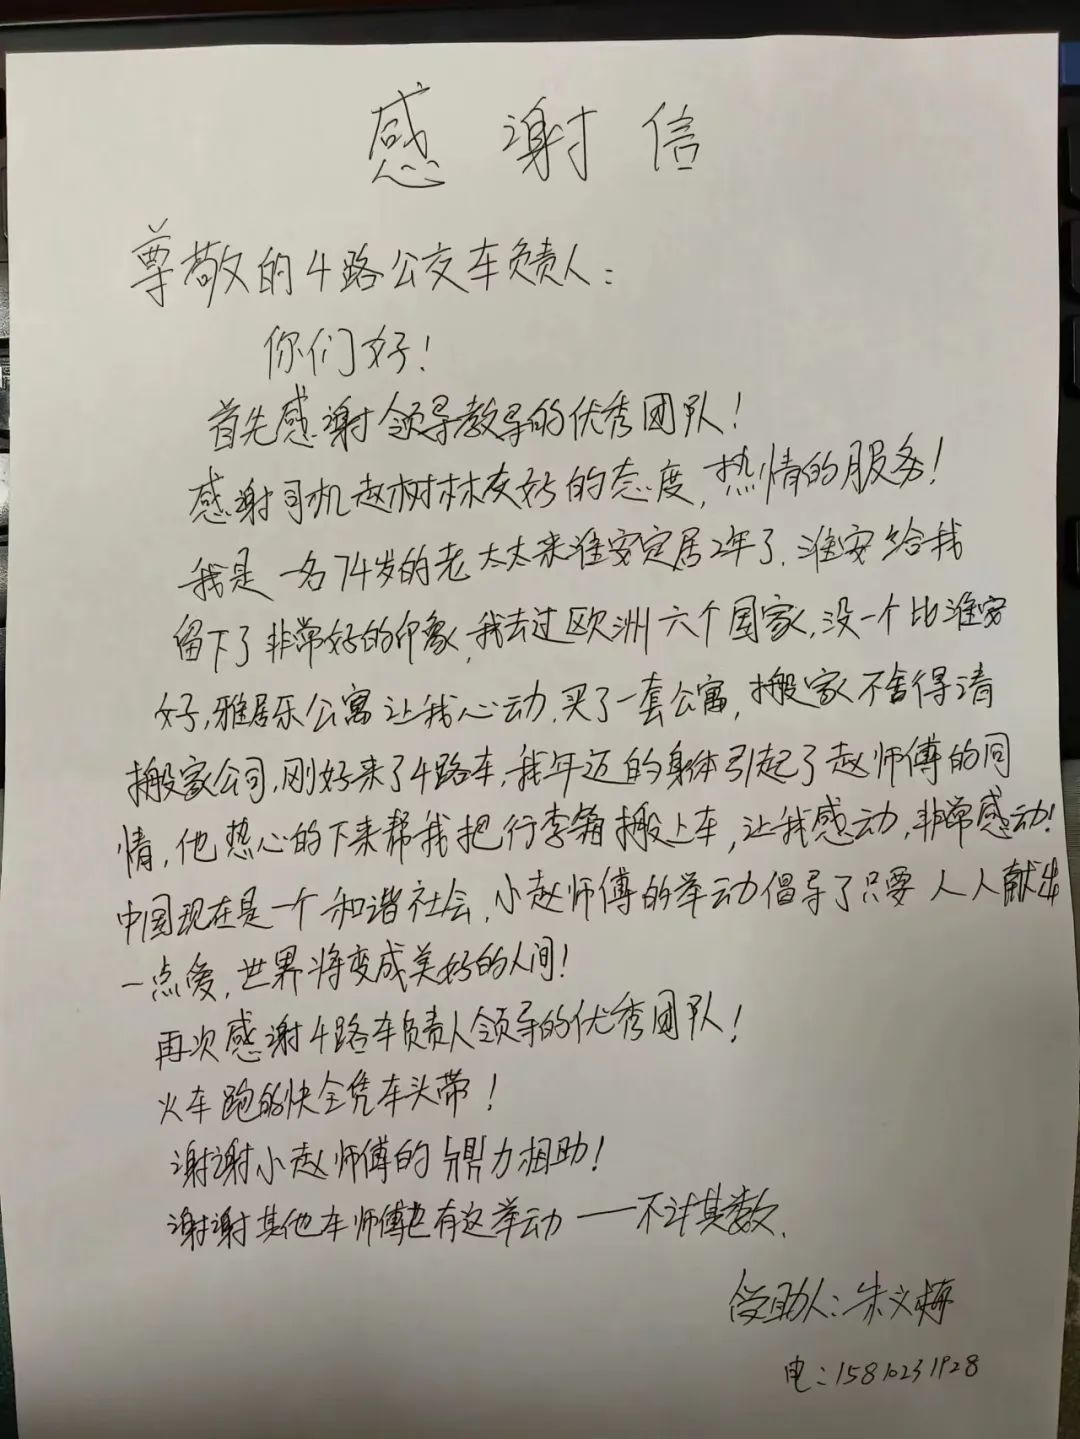 感谢信
尊敬的4路公交车负责人:
你们好!
首先感谢领导教导的优秀团队!
感谢司机赵树林友好的态度,热情的服务!
我是一名74岁的老太太来淮安定居2年了.淮安给我
留下了非常好的印象,我去过欧洲六个国家,没一个比淮安
好,雅居乐公寓让我心动,买了一套公寓,搬家不舍得请
搬家公司,刚好来了4路车,我年迈的身体引起了赵师傅的同
情,他热心的下来帮我把行李箱搬上车,让我感动,非常感动!
中国现在是一个和谐社会,小赵师傅的举动倡导了只要人人献出
一点爱,世界将变成美好的人间!
再次感谢4路车负责人领导的优秀团队!
火车跑的快全凭车头带!
谢谢小赵师傅的鼎力相助!
谢谢其他车师傅也有这举动——不计其数.
受助人:朱义梅
电:15810231928